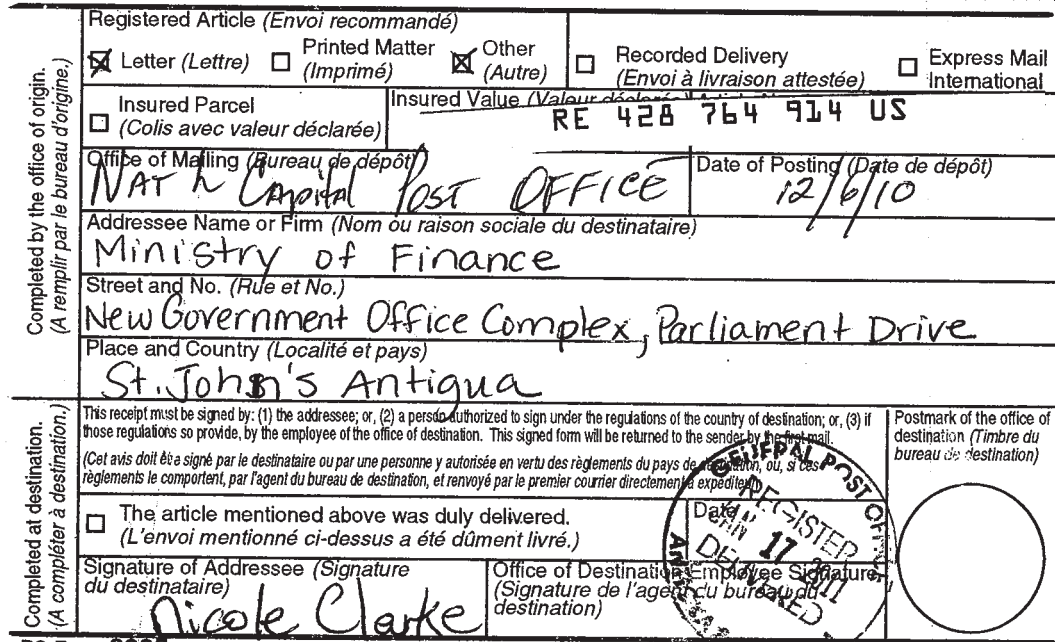 Completed by the office of origin.
(A remplir par le bureau d'origine.)
Registered Article (Envoi recommandé)
Letter (Lettre)
Printed Matter
(Imprimé)
Other
(Autre)
Recorded Delivery
(Envoi à livraison attestée)
Express Mail
International
Insured Parcel
(Colis avec valeur déclarée)
Insured Value (Valeur déclarée)
RE 428 764 914 US
Office of Mailing (Bureau de dépôt)
NAT'L Capital POST OFFICE
Date of Posting (Date de dépôt)
12/6/10
Addressee Name or Firm (Nom ou raison sociale du destinataire)
Ministry of Finance
Street and No. (Rue et No.)
New Government Office Complex, Parliament Drive
Place and Country (Localité et pays)
St. John's Antigua
Completed at destination.
(A compléter à destination.)
This receipt must be signed by: (1) the addressee; or, (2) a person authorized to sign under the regulations of the country of destination; or, (3) if
those regulations so provide, by the employee of the office of destination. This signed form will be returned to the sender by the first mail.
(Cet avis doit être signé par le destinataire ou par une personne y autorisée en vertu des règlements du pays de destination, ou, si ces
règlements le comportent, par l'agent du bureau de destination, et renvoyé par le premier courrier directement à expéditeur)
Postmark of the office of
destination (Timbre du
bureau de destination)
The article mentioned above was duly delivered.
(L'envoi mentionné ci-dessus a été dûment livré.)
Date
GENERAL POST OFFICE
REGISTER
JAN 17 2011
DELIVERED
Signature of Addressee (Signature
du destinataire)
Nicole Clarke
Office of Destination Employee Signature
(Signature de l'agent du bureau du
destination)